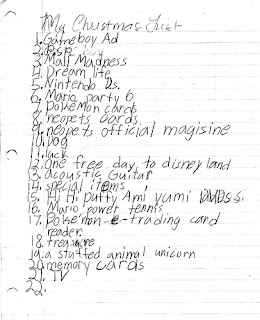 My Christmas List
1. Gameboy Ad
2.
3. Mall Madness
4. Dream life
5. Nintendo Ds.
6. Mario party 6
7. Pokemon cards
8. neopets cards.
9. neopets official magisine
10. Dog
11. luck
12. One free day to disneyland
13. acoustic Guitar
14. special items
15. Hi Hi puffy Ami yumi DVDs.
16. Mario power tennis
17. Poke'mon e-trading card
reader.
18. treasure
19. a stuffed animal unicorn
20. memory cards
21. TV
22.